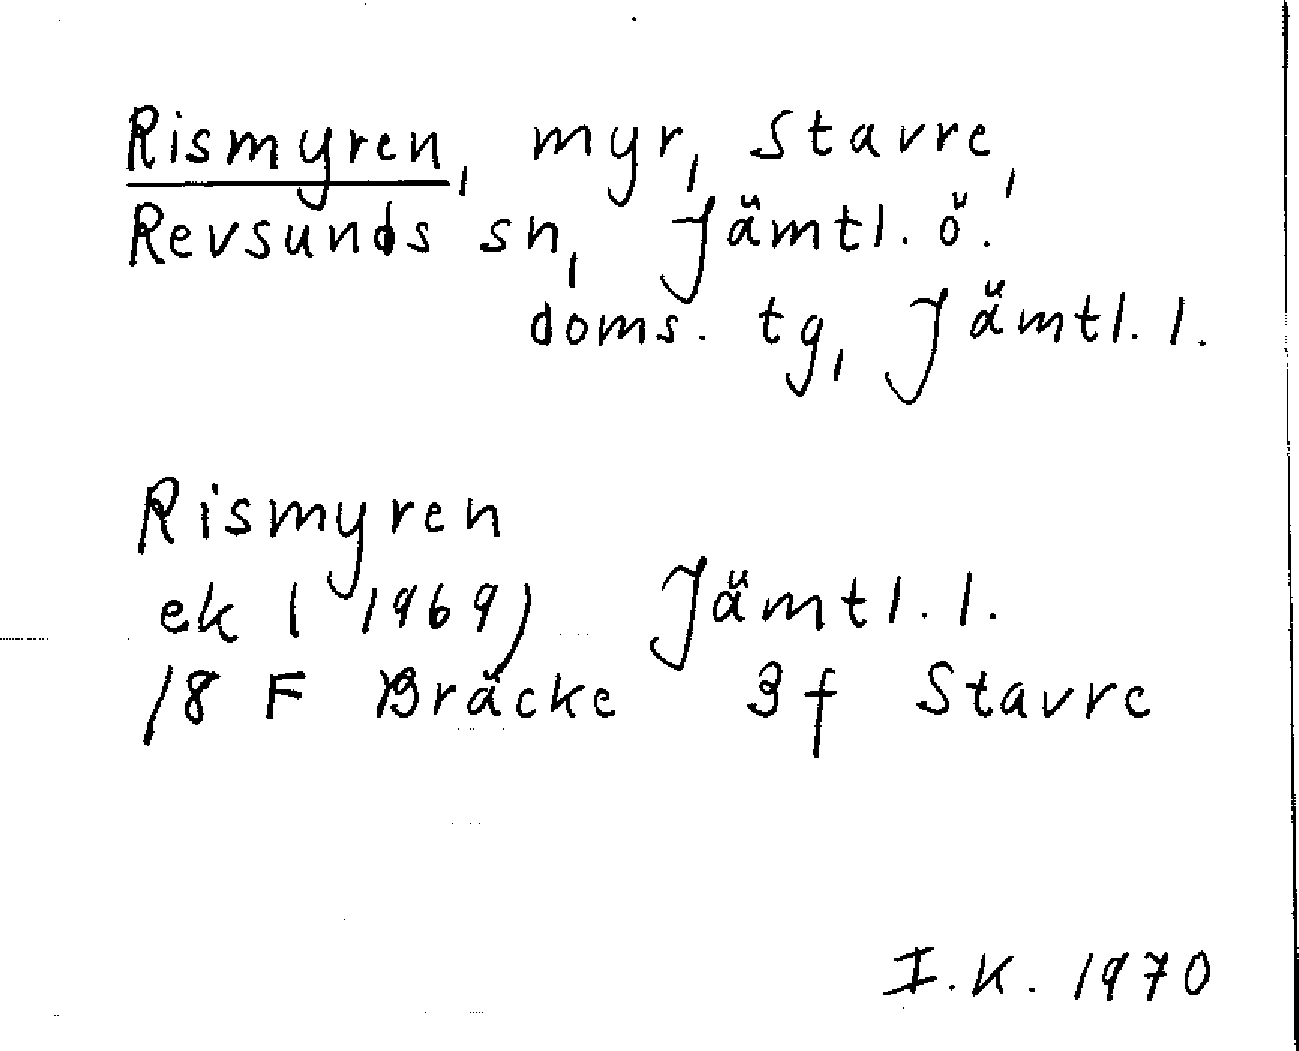 Rismyren, myr, Stavre,
Revsunds sn, Jämtl. ö.
doms. tg, Jämtl. l.
Rismyren
ek (1969) Jämtl. l.
18 F Bräcke 3 f Stavre
I.K. 1970